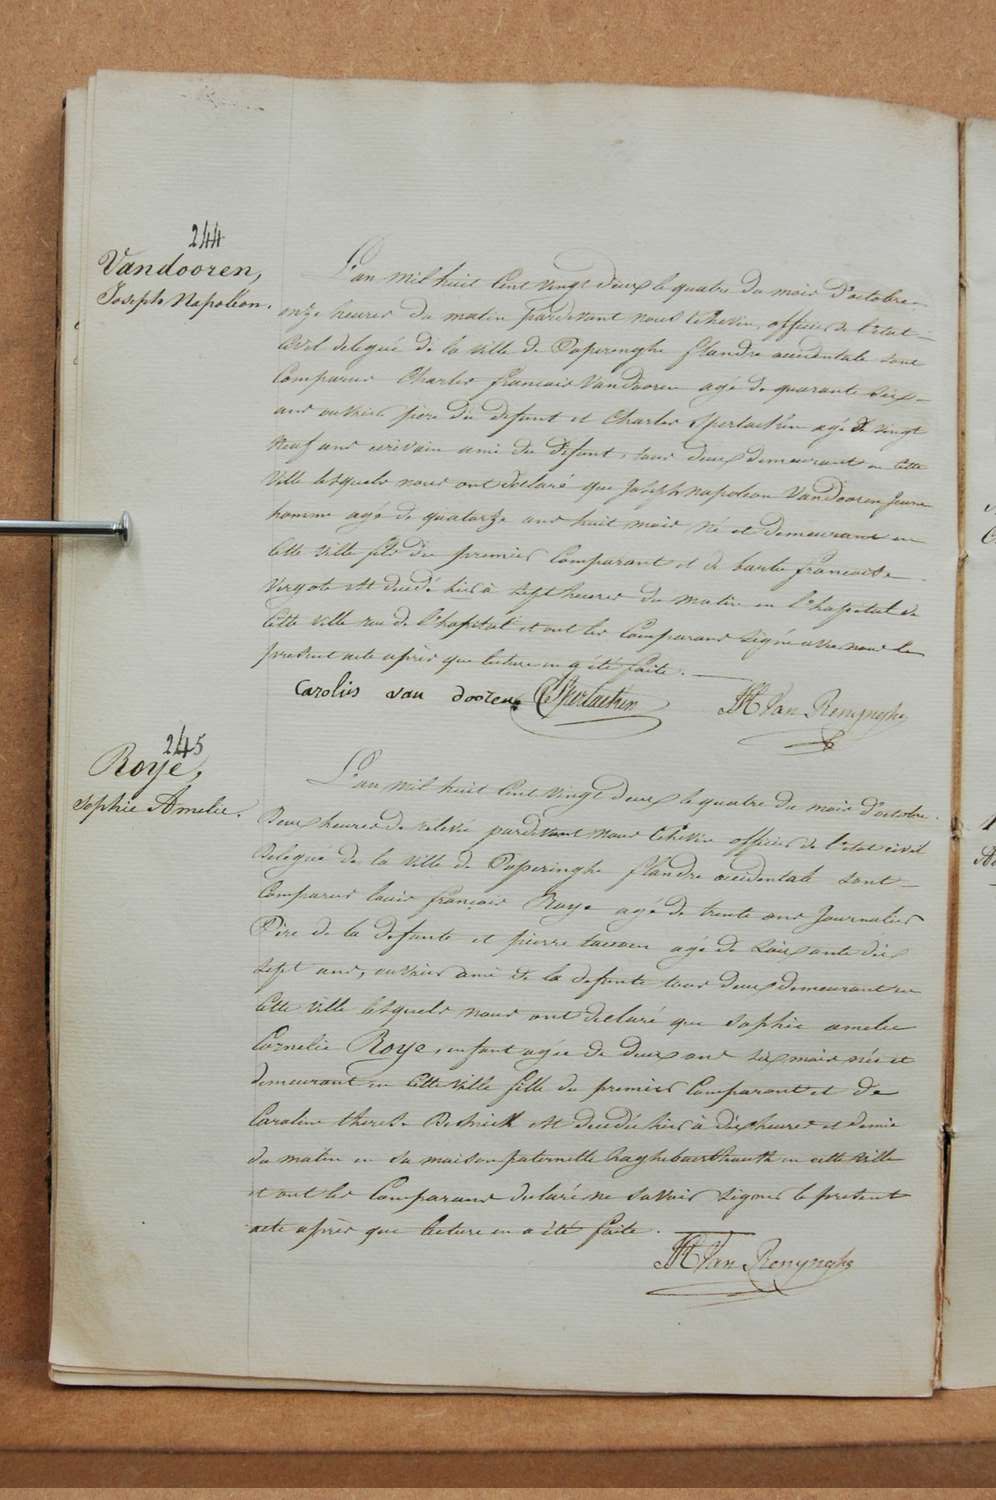 244
Vandooren,
Joseph Napoléon.
L'an mil huit Cent vingt deux le quatre du mois d'octobre
onze heures du matin pardevant nous Echevin, officier de l'état
Civil delegué de la ville de Poperinghe flandre occidentale sont
Comparus Charles francois Vandooren agé de quarante six
ans ouvrier père du defunt et Charles Sperlaekin agé de vingt
neuf ans ecrivain ami du defunt, tous deux demeurant en cette
ville lesquels nous ont declaré que Joseph napoleon Vandooren Jeune
homme agé de quatorze ans huit mois né et demeurant en
cette ville fils du premier Comparant et de barbe francoise
Vergote est decedé hier à sept heures du matin en l'hopital de
cette ville rue de l'hopital et ont les Comparans signé avec nous le
present acte après que lecture en a été faite.
Carolus van dooren
JH Van Renynghe
245
Roye,
Sophie Amelie.
L'an mil huit Cent vingt deux le quatre du mois d'octobre
Deux heures de relevée pardevant nous Echevin officier de l'etat civil
delegué de la ville de Poperinghe flandre occidentale sont
Comparus louis françois Roye agé de trente ans Journalier
Père de la defunte et pierre agé de soixante dix
sept ans, ouvrier ami de la defunte tous deux demeurant en
cette ville lesquels nous ont declaré que Sophie amelie
Cornelie Roye, enfant agée de deux ans six mois née et
demeurant en cette ville fille du premier Comparant et de
Caroline therese est decedée hier à dix heures et demie
du matin en sa maison paternelle en cette ville
et ont les Comparans declaré ne savoir signer le present
acte après que lecture en a été faite.
JH Van Renynghe